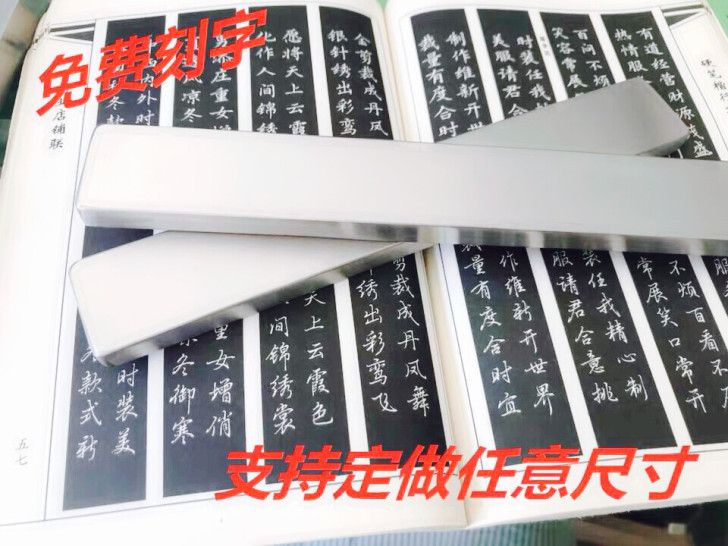 免费刻字
硬笔楷
有道经营财源茂盛
热情服
百问不烦
笑容常展
时装任我
美服请君
制作维新开世
裁量有度合时
金剪裁成丹凤
银针绣出彩鸾
愿将天上云霞
化作人间锦绣
庄重女增
凉冬
内外时
冬款
店铺联
不烦百看不
常展笑口常开
装任我精心制
服请君合意挑
作维新开世界
裁量有度合时宜
剪裁成丹凤舞
绣出彩鸾飞
天上云霞色
间锦绣裳
重女增俏
冬御寒
时装美
款式新
五七
支持定做任意尺寸